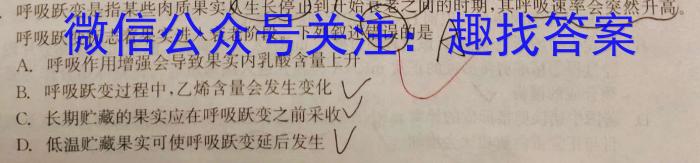 呼吸跃变是指某些肉质果实从生长停止到开始衰老之间的时期,其呼吸速率会突然升高。
呼吸跃变标志着果实进入衰老阶段。下列叙述错误的是
微信公众号关注：趣找答案
A
A. 呼吸作用增强会导致果实内乳酸含量上升
B. 呼吸跃变过程中,乙烯含量会发生变化
C. 长期贮藏的果实应在呼吸跃变之前采收
D. 低温贮藏果实可使呼吸跃变延后发生